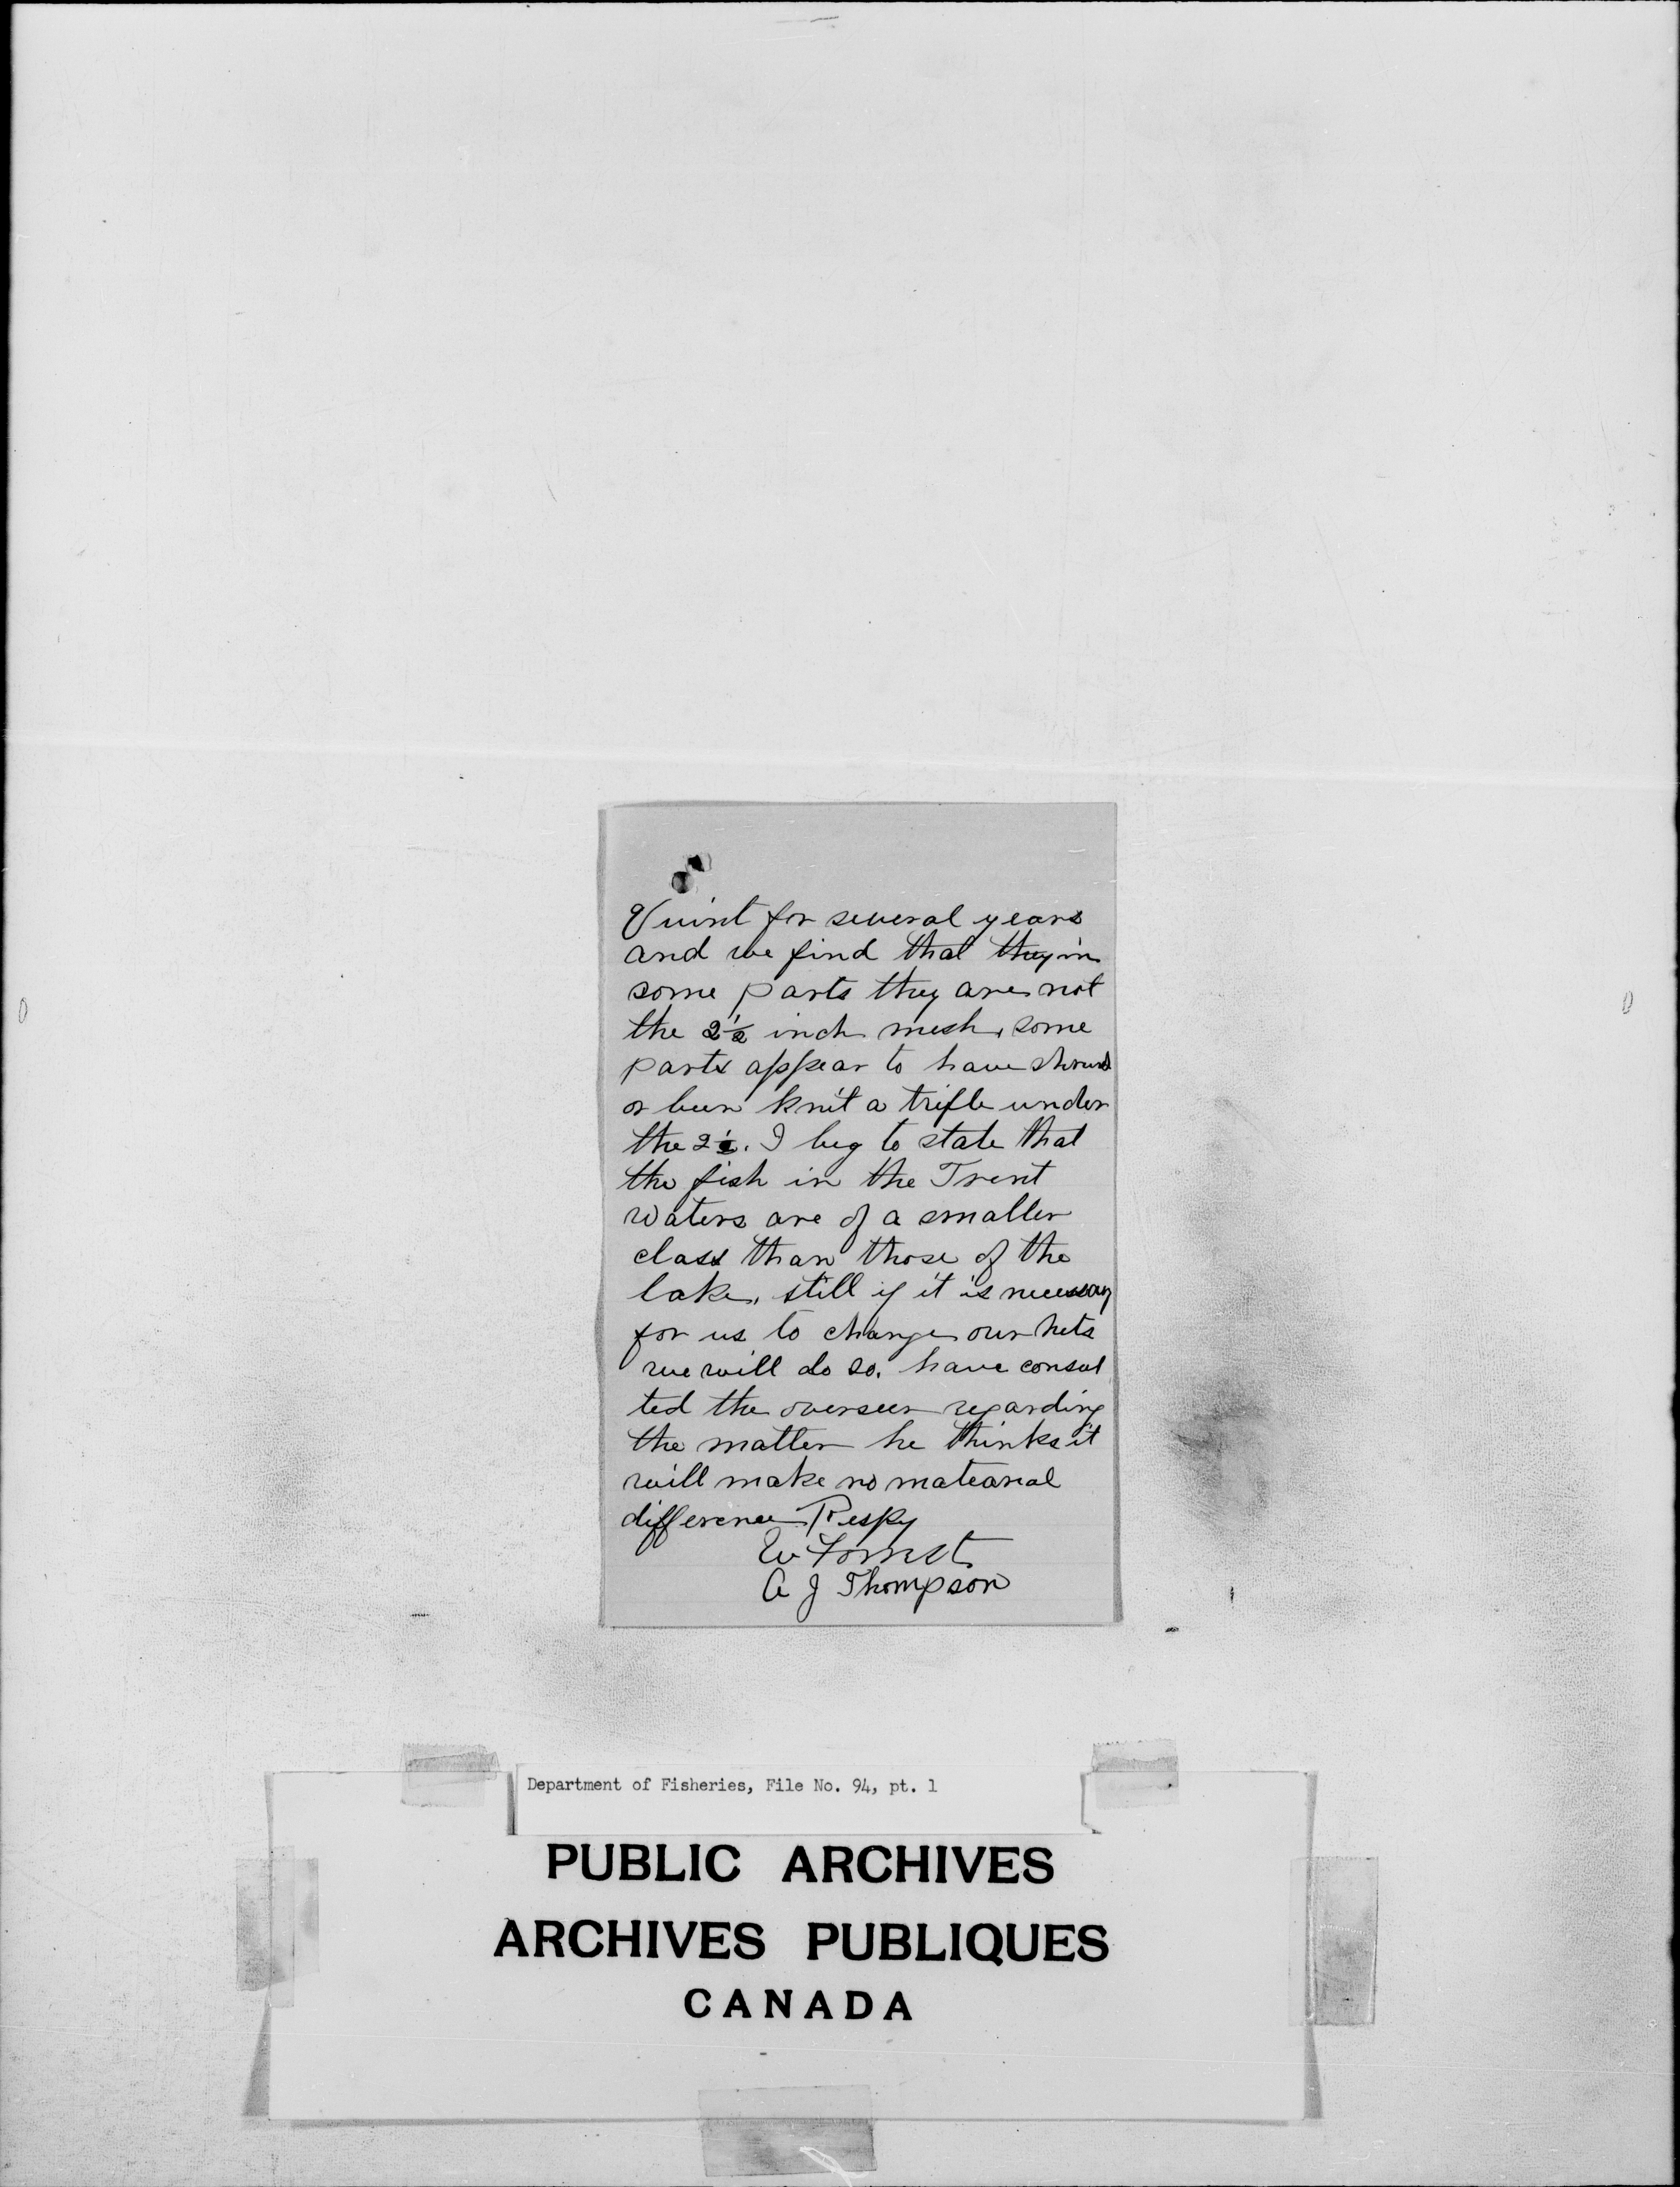 Quint for several years
and we find that they in
some parts they are not
the 2½ inch mesh, some
parts appear to have shrunk
or been knit a trifle under
the 2½. I beg to state that
the fish in the Trent
waters are of a smaller
class than those of the
lake, still if it is necessary
for us to change our nets
we will do so. have consul
ted the overseer regarding
the matter he thinks it
will make no matearial
difference Respy
W Forrest
A J Thompson
Department of Fisheries, File No. 94, pt. 1
PUBLIC ARCHIVES
ARCHIVES PUBLIQUES
CANADA